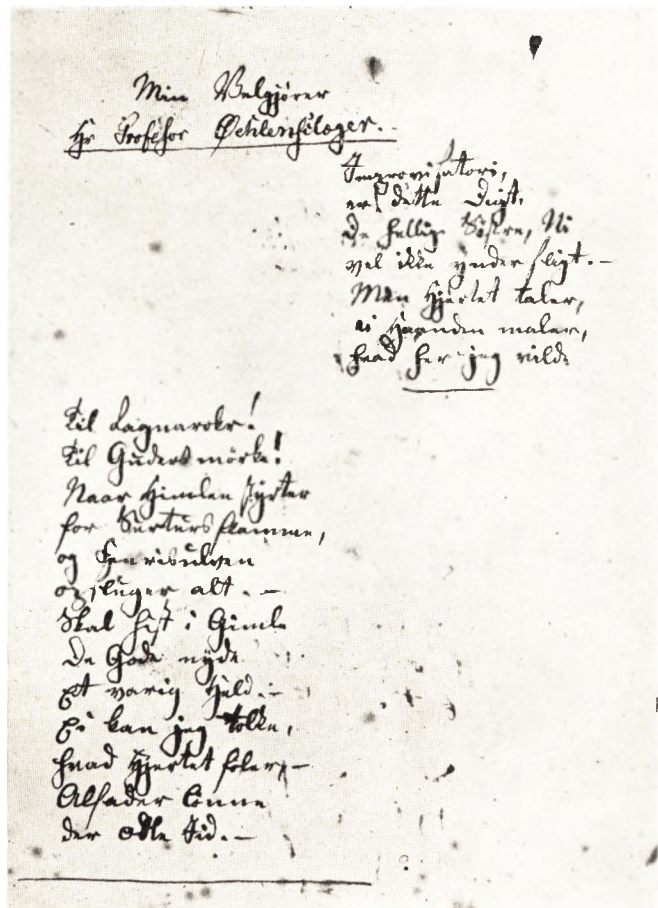 Min Velgjører
Hr Profeſsor Øehlenſlæger.
Improviſatori,
er dette Digt.
De hellige Söſtre, Ni
vel ikke ynder ſligt. —
Men Hjertet taler,
ei Haanden maler,
hvad her jeg vilde
Til Ragnarokr!
Til Guders mörke!
Naar Himlen ſtyrter
for Surturs flamme,
og Fenrisulven
opſluger alt. —
Skal hiſt i Gimle
De Gode nyde
Et varig Held. —
Ei kan jeg tolke,
hvad Hjertet föler, —
Alfader lönne
der ædle Id. —